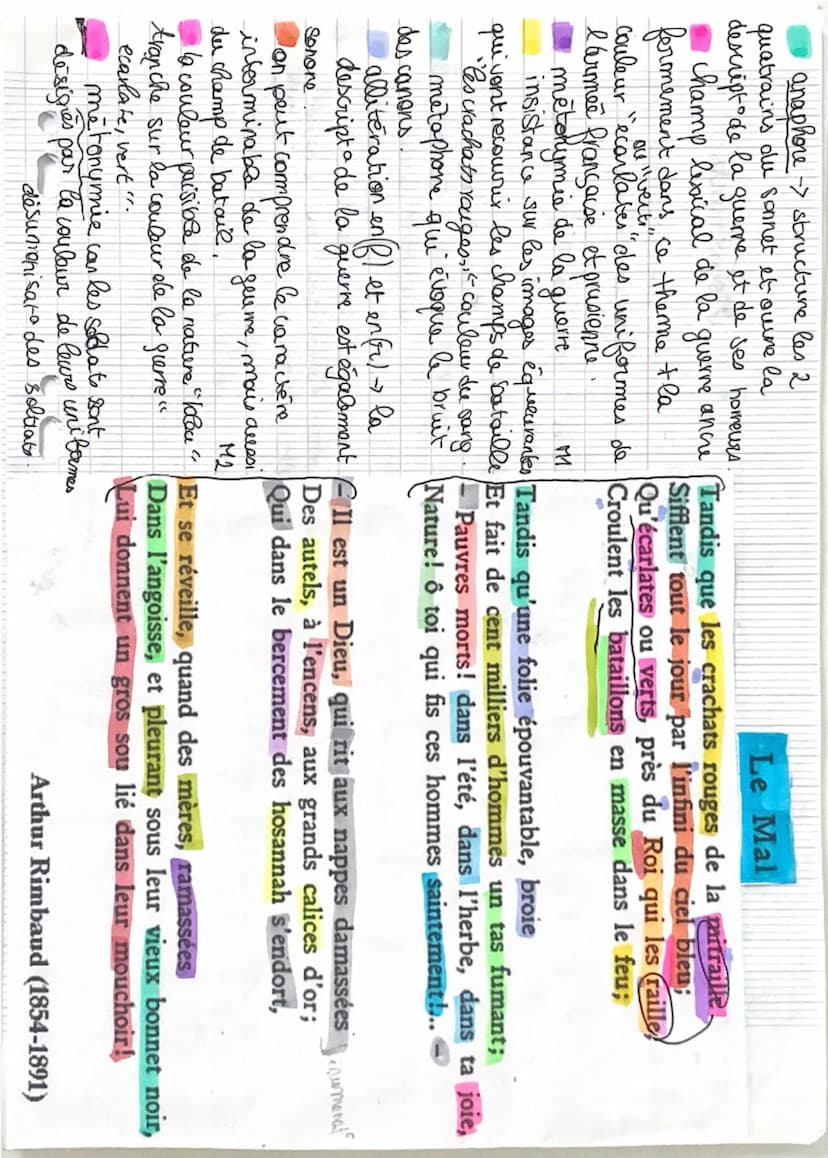 anaphore → structure les 2
quatrains du sonnet et ouvre la
descript° de la guerre et de ses horreurs.
champ lexical de la guerre ancre
fermement dans ce thème + la
ou "verts"
couleur "écarlates" des uniformes de
l'armée française et prusienne.
métonymie de la guerre M1
insistance sur les images écoeurantes
qui vont recouvrir les champs de bataille
"les crachats rouges," couleur du sang.
métaphore qui évoque le bruit
des canons.
allitération en (f) et en (r) → la
descript° de la guerre est également
sonore
on peut comprendre le caractère
interminable de la geurre, mais aussi
du champ de bataile. M2
la couleur paisible de la nature "bleu"
tranche sur la couleur de la guerre"
ecarlate, vert".
métonymie car les soldats sont
désignés par la couleur de leurs uniformes
désumanisat° des soldats.
Le Mal
Tandis que les crachats rouges de la mitraille
Sifflent tout le jour par l'infini du ciel bleu;
Qu'écarlates ou verts, près du Roi qui les raille,
Croulent les bataillons en masse dans le feu;
Tandis qu'une folie épouvantable, broie
Et fait de cent milliers d'hommes un tas fumant;
– Pauvres morts! dans l'été, dans l'herbe, dans ta joie,
Nature! ô toi qui fis ces hommes saintement!.. –
– Il est un Dieu, qui rit aux nappes damassées
Des autels, à l'encens, aux grands calices d'or;
Qui dans le bercement des hosannah s'endort,
Et se réveille, quand des mères, ramassées
Dans l'angoisse, et pleurant sous leur vieux bonnet noir,
Lui donnent un gros sou lié dans leur mouchoir!
Arthur Rimbaud (1854-1891)